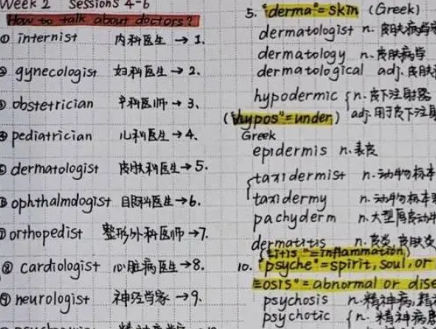 Week 2 Sessions 4-6
How to talk about doctors?
① internist 内科医生 → 1.
② gynecologist 妇科医生 → 2.
③ obstetrician 产科医师 → 3.
④ pediatrician 儿科医生 → 4.
⑤ dermatologist 皮肤科医生 → 5.
⑥ ophthalmologist 眼科医生 → 6.
⑦ orthopedist 整形外科医师 → 7.
⑧ cardiologist 心脏病医生 → 8.
⑨ neurologist 神经学家 → 9.
5. "derma"=skin (Greek)
dermatologist n. 皮肤病学
dermatology n. 皮肤病学
dermatological adj. 皮肤
hypodermic { n. 皮下注射器
("hypos"=under) adj. 用于皮下注射
Greek
epidermis n. 表皮
taxidermist n. 动物标本
taxidermy n. 动物标本
pachyderm n. 大型厚皮动
dermatitis n. 皮炎, 皮肤炎
"itis"=inflammation
10. "psyche"=spirit, soul, or
"osis"=abnormal or dise
psychosis n. 精神病, 精
psychotic { n. 精神病患